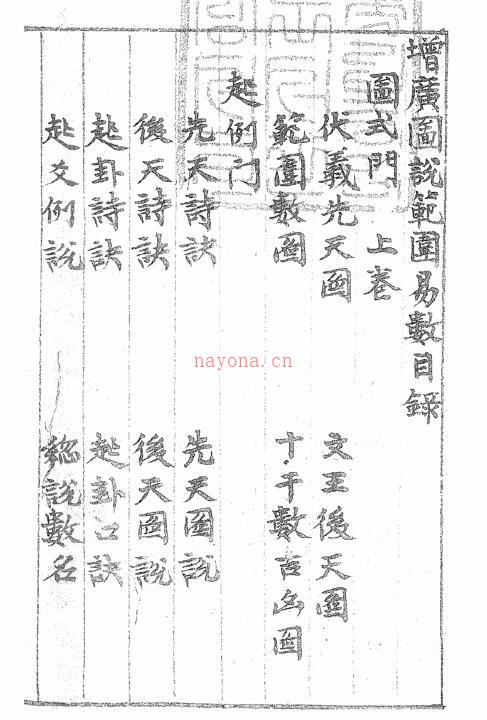 增廣圖說範圍易數目錄
圖式門 上卷
伏羲先天圖 文王後天圖
範圍數圖 十干數吉凶圖
起例门
先天詩訣 先天圖說
後天詩訣 後天圖說
起卦詩訣 起卦口訣
起爻例說 總說數名
nayona.cn